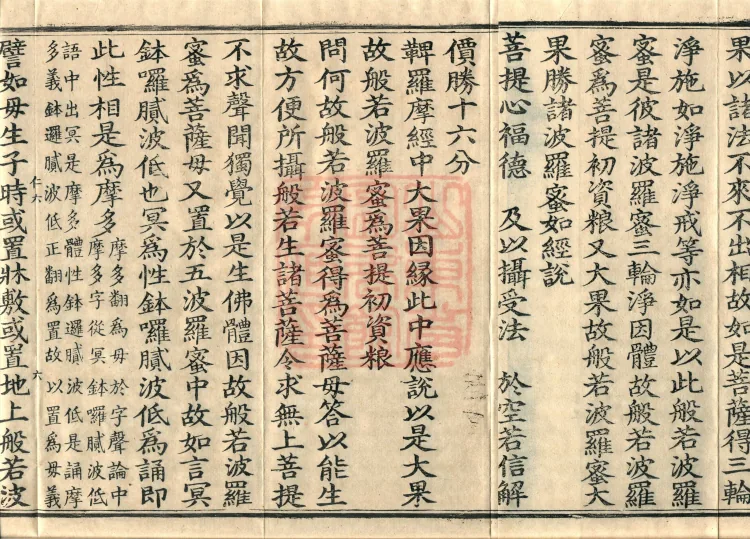 果以諸法不來不出相故如是菩薩得三輪
淨施如淨施淨戒等亦如是以此般若波羅
蜜是彼諸波羅蜜三輪淨因體故般若波羅
蜜爲菩提初資粮又大果故般若波羅蜜大
果勝諸波羅蜜如經說
菩提心福德 及以攝受法 於空若信解
價勝十六分
鞞羅摩經中大果因緣此中應說以是大果
故般若波羅蜜爲菩提初資粮
問何故般若波羅蜜得爲菩薩母答以能生
故方便所攝般若生諸菩薩令求無上菩提
不求聲聞獨覺以是生佛體因故般若波羅
蜜爲菩薩母又置於五波羅蜜中故如言冥
鉢囉膩波低也冥爲性鉢囉膩波低爲誦即
此性相是爲摩多
摩多翻爲母於字聲論中
摩多字從冥 鉢囉膩波低
語中出冥是摩多體性鉢邏膩波低是誦摩
多義鉢邏膩波低正翻爲置故以置爲母義
仁六
六
譬如母生子時或置牀敷或置地上般若波